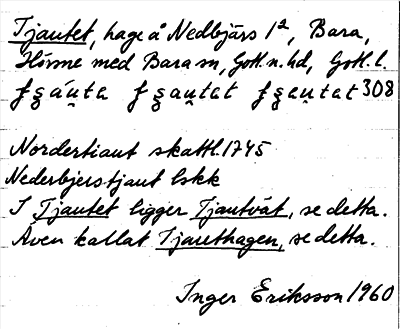 Tjautet, hage å Nedbjärs 1², Bara,
Hörsne med Bara sn, Gotl. n. hd, Gotl. l.
308
Nordertiaut skattl. 1745
Nederbjerstjaut lskk
I Tjautet ligger Tjautvät, se detta.
Även kallat Tjauthagen, se detta.
Inger Eriksson 1960